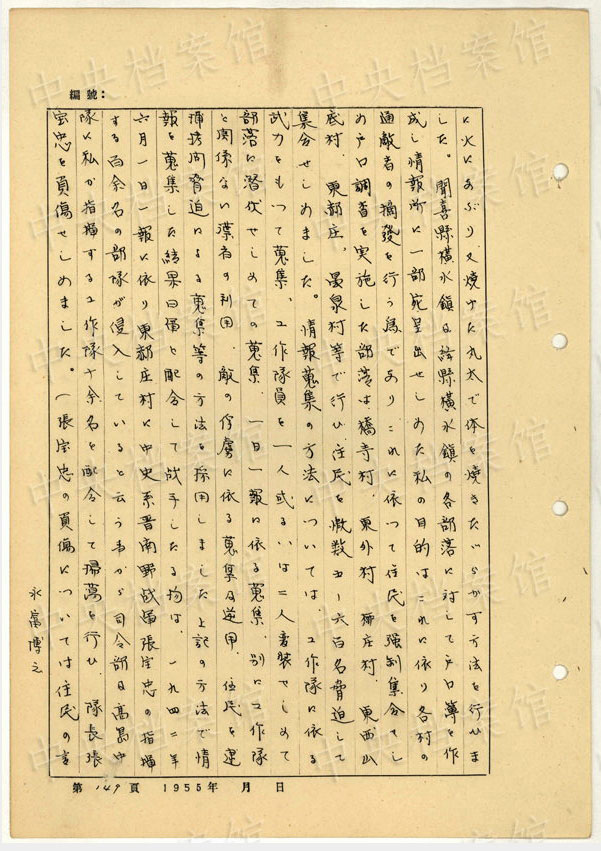 編號：
に火にあぶり又焼けた丸太で体を焼きたゞらかす方法を行ひま
した。聞喜縣横水鎮日絳縣横水鎮の各部落に対して戸口簿を作
成し情報所に一部宛呈出せしめた私の目的はこれに依り各村の
通敵者の摘發を行う為でありこれに依つて住民を强制集合せし
め戸口調査を実施した部落は橋寺村、東外村 柳庄村、東西山
底村、東郝庄、墨泉村等で行ひ、住民を概数五－六百名脅迫して
集合せしめました。情報蒐集の方法については、工作隊に依る
武力をもつて蒐集、工作隊員を一人或るいは二人変装せしめて
部落に潜伏せしめての蒐集、一日一報に依る蒐集、別に工作隊
と関係ない漢者の利用、敵の俘虜に依る蒐集及逆用、住民を逮
捕拷問脅迫による蒐集等の方法を採用しました上記の方法で情
報を蒐集した結果日軍と配合して成手したる均は、一九四二年
六月一日一報に依り東郝庄村に中央系晋南野战軍張宝忠の指揮
する百余名の部隊が侵入していると云う事から司令部日高島中
隊に私が指揮する工作隊十余名を配合して掃蕩を行ひ、隊長張
宝忠を負傷せしめました。（張宝忠の負傷については住民の言
永富博之
第 149 頁 1955年 月 日
中央档案馆